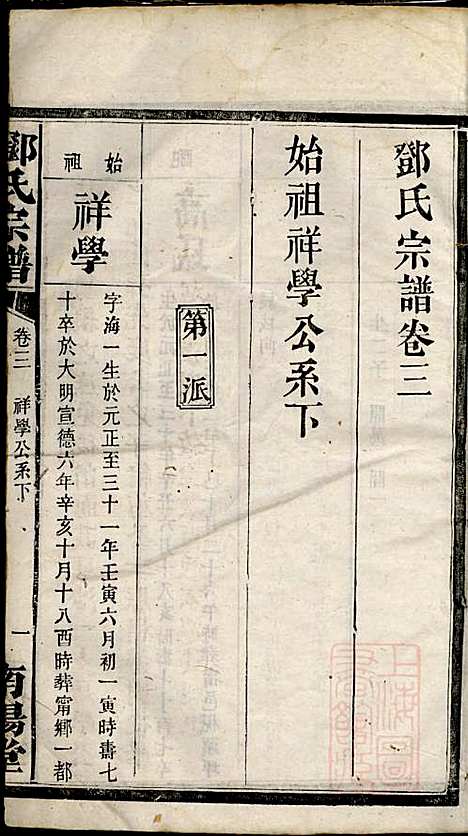 鄧氏宗譜卷三
始祖祥學公系下
第一派
始祖
祥學
字海一生於元正至三十一年壬寅六月初一寅時壽七
十卒於大明宣德六年辛亥十月十八酉時葬甯鄉一都
鄧氏宗譜
卷三
祥學公系下
一
南陽堂